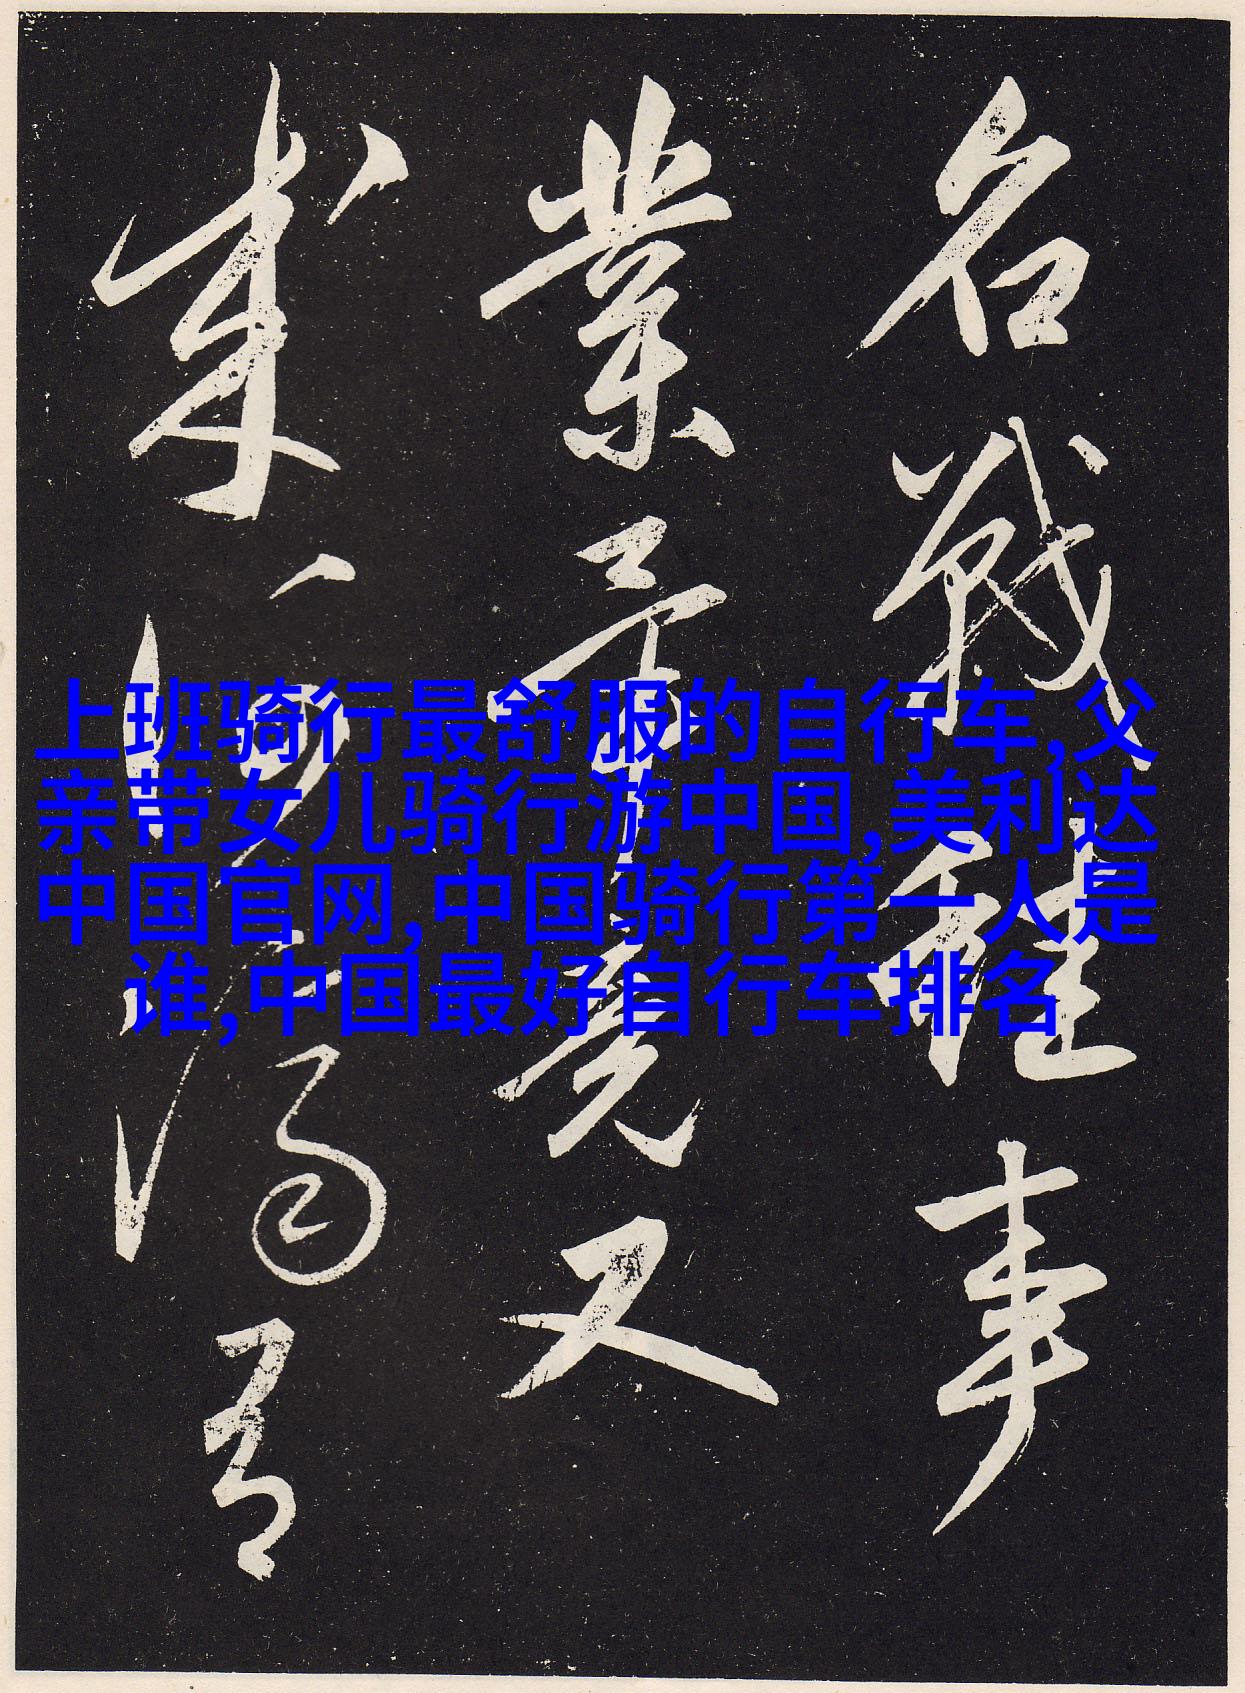 上班骑行最舒服的自行车,父
亲带女儿骑行游中国,美利达
中国官网,中国骑行第一人是
谁,中国最好自行车排名
名戰雖事
業竟又
成何